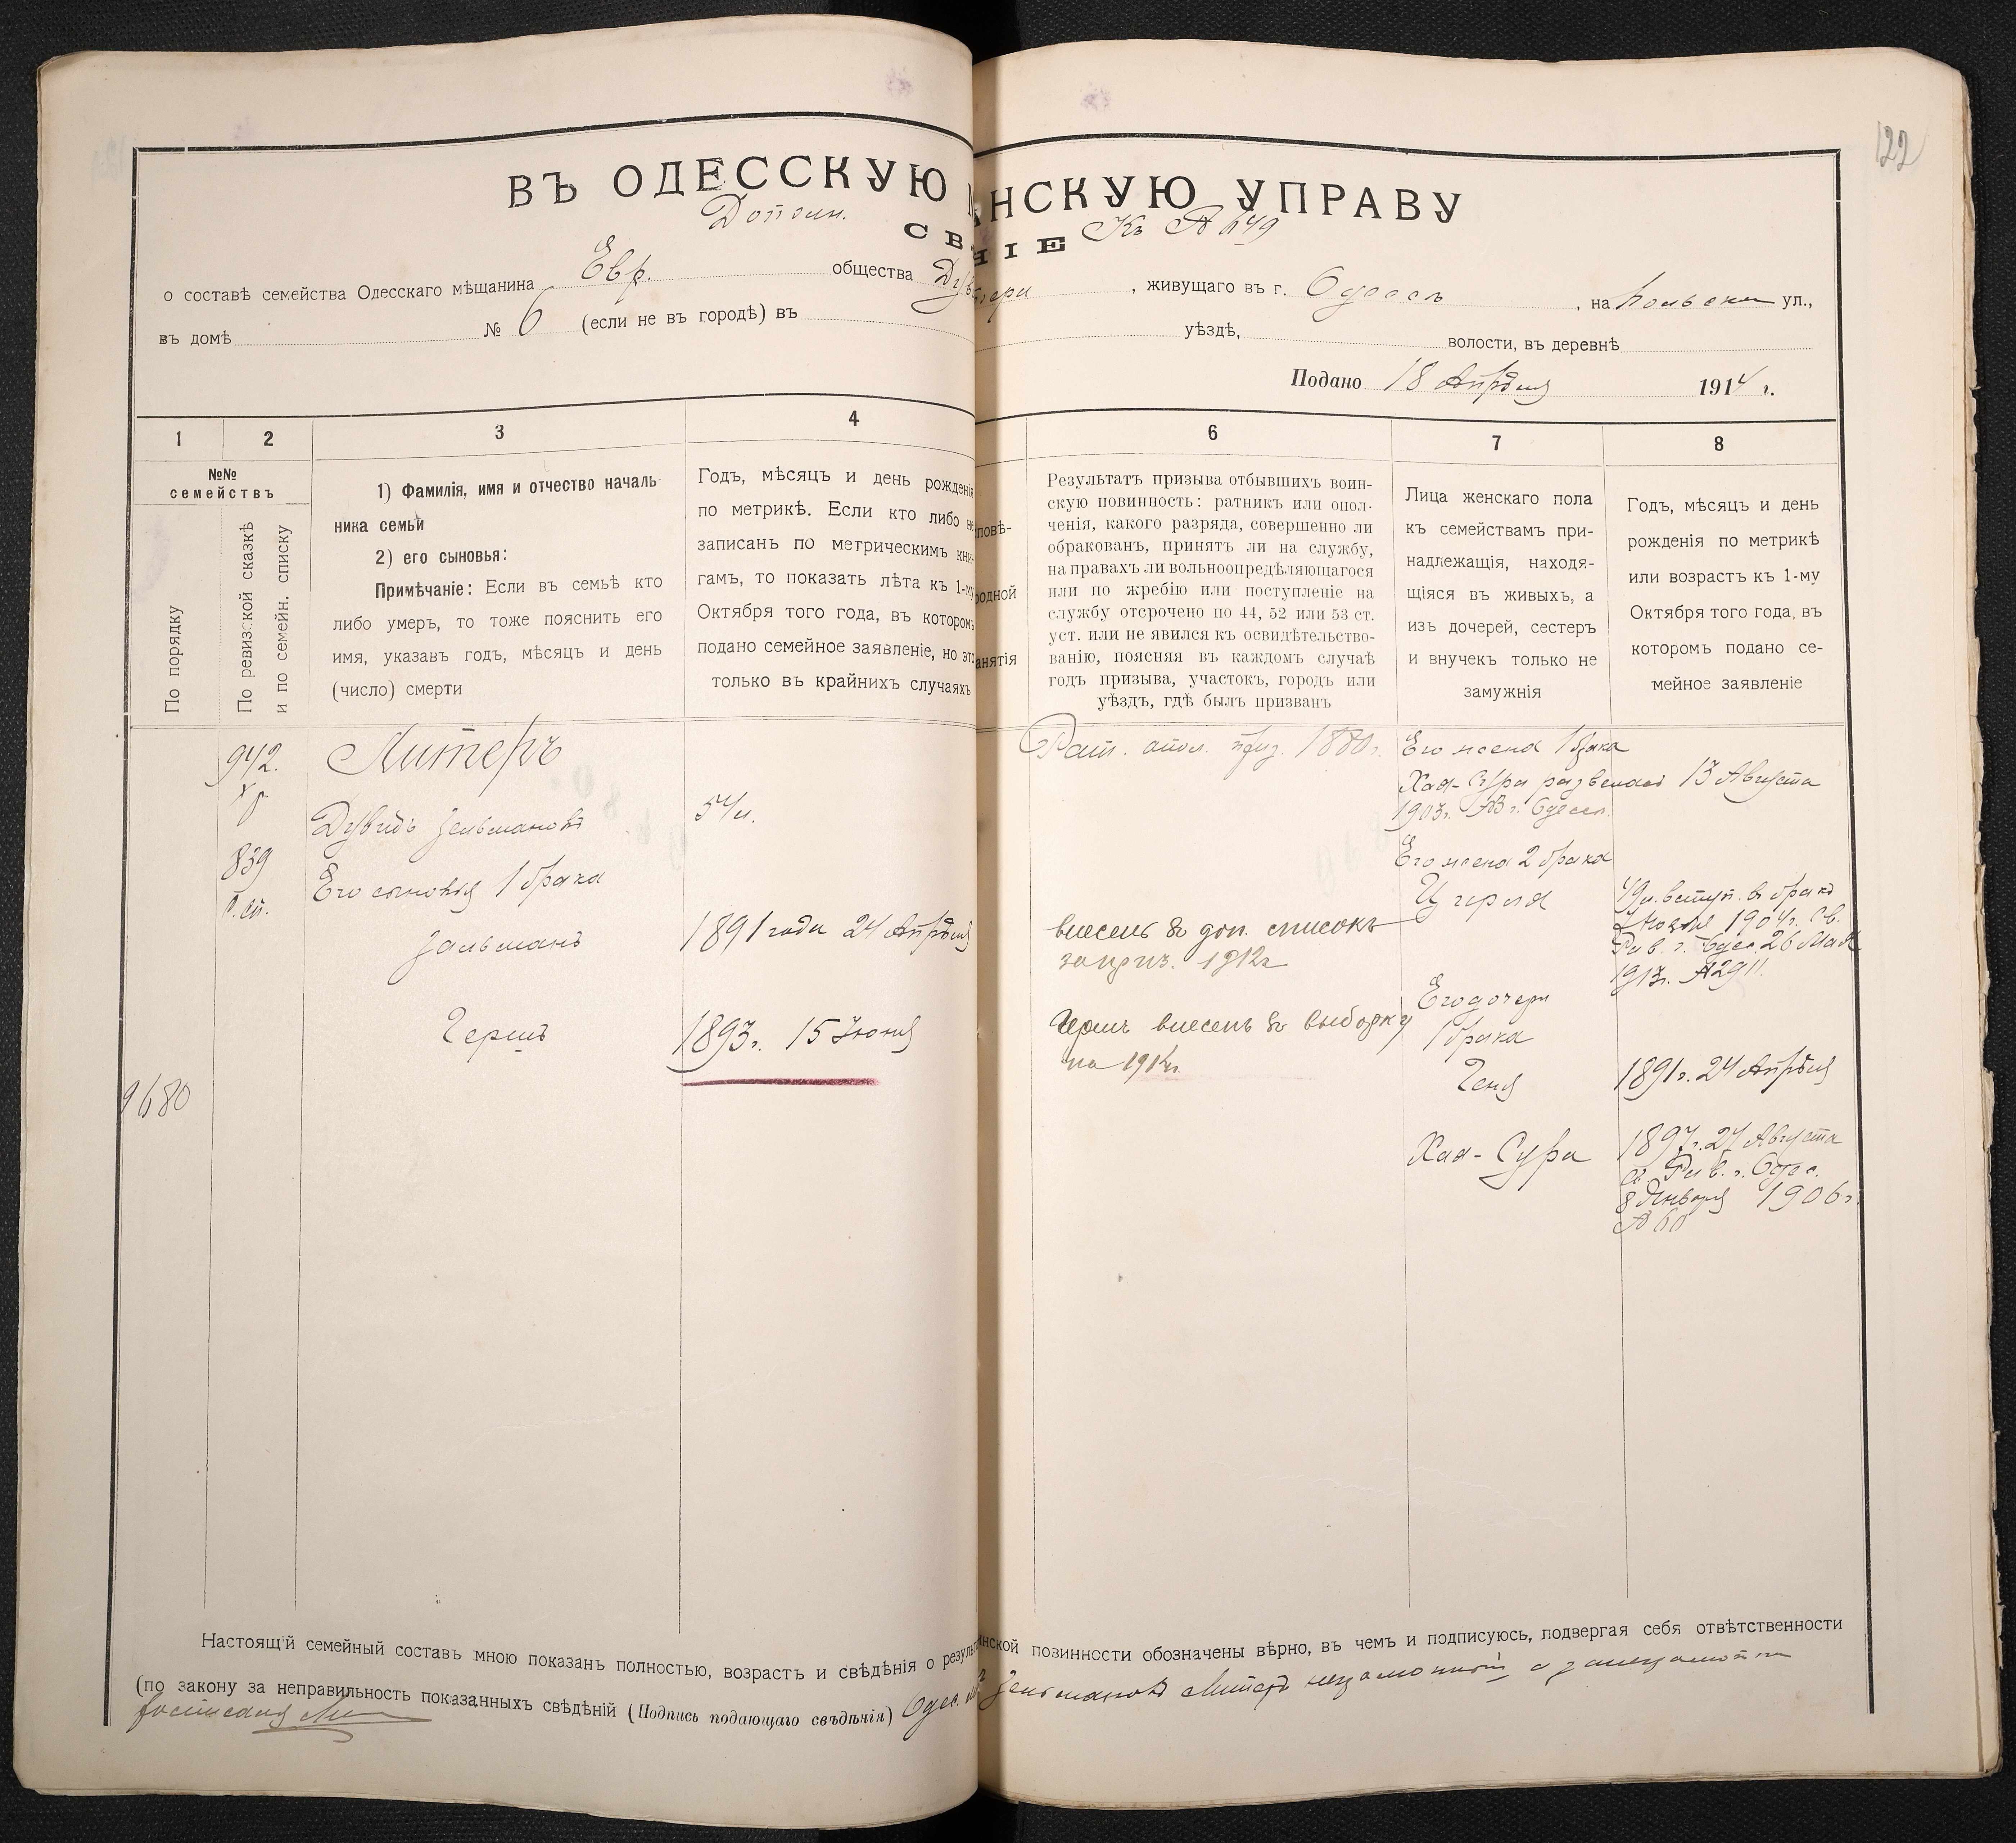 122
ВЪ ОДЕССКУЮ НСКУЮ УПРАВУ
Дополн. СВ НІЕ Къ № 649
о составѣ семейства Одесскаго мѣщанина Евр. общества , живущаго въ г. Одессѣ , на ул.,
въ домѣ № 6 (если не въ городѣ) въ уѣздѣ, волости, въ деревнѣ
Подано 18 Апрѣля 1914 г.
1 2 3 4 6 7 8
№№
семействъ
По порядку
По ревизской сказкѣ
и по семейн. списку
1) Фамилія, имя и отчество началь
ника семьи
2) его сыновья:
Примѣчаніе: Если въ семьѣ кто
либо умеръ, то тоже пояснить его
имя, указавъ годъ, мѣсяцъ и день
(число) смерти
Годъ, мѣсяцъ и день рожденія
по метрикѣ. Если кто либо не
записанъ по метрическимъ кни-
гамъ, то показать лѣта къ 1-му
Октября того года, въ которомъ
подано семейное заявленіе, но это
только въ крайнихъ случаяхъ
повѣ-
родной
анятія
Результатъ призыва отбывшихъ воин-
скую повинность: ратникъ или опол-
ченія, какого разряда, совершенно ли
обракованъ, принятъ ли на службу,
на правахъ ли вольноопредѣляющагося
или по жребію или поступленіе на
службу отсрочено по 44, 52 или 53 ст.
уст. или не явился къ освидѣтельство-
ванію, поясняя въ каждомъ случаѣ
годъ призыва, участокъ, городъ или
уѣздъ, гдѣ былъ призванъ
Лица женскаго пола
къ семействамъ при-
надлежащія, находя-
щіяся въ живыхъ, а
изъ дочерей, сестеръ
и внучекъ только не
замужнія
Годъ, мѣсяцъ и день
рожденія по метрикѣ
или возрастъ къ 1-му
Октября того года, въ
которомъ подано се-
мейное заявленіе
942.
839
9680
Литеръ
Дувидъ Зельмановъ
Его сыновья 1 брака
Зальманъ
Гершъ
54 л.
1891 года 24 Апрѣля
1893 г. 15 Іюня
Рат. опол. приз. 1880 г.
внесенъ въ доп. списокъ
за приз. 1912 г
Гершъ внесенъ въ выборку
на 1914 г.
Его жена 1 брака
Хая-Сура разведена 13 Августа
1903 г. въ г. Одессѣ.
Его жена 2 брака
Его дочери
1 брака
Геня
Хая-Сура
49 л. вступ. въ бракъ
1904 г. св.
Рав. г. Одес. 26 Мая
1913 г. № 2911.
1891 г. 24 Апрѣля
1897 г. 24 Августа
св. Рав. г. Одес.
8 Января 1906 г.
№ 60
Настоящій семейный составъ мною показанъ полностью, возрастъ и свѣдѣнія о резуль инской повинности обозначены вѣрно, въ чемъ и подписуюсь, подвергая себя отвѣтственности
(по закону за неправильность показанныхъ свѣдѣній (Подпись подающаго свѣдѣнія) Одес. Зельмановъ Литеръ неграмотный а за неграмотн
росписался